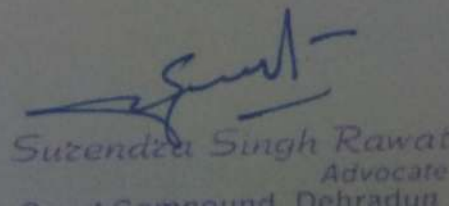 Surendra Singh Rawat
Advocate
Compound, Dehradun